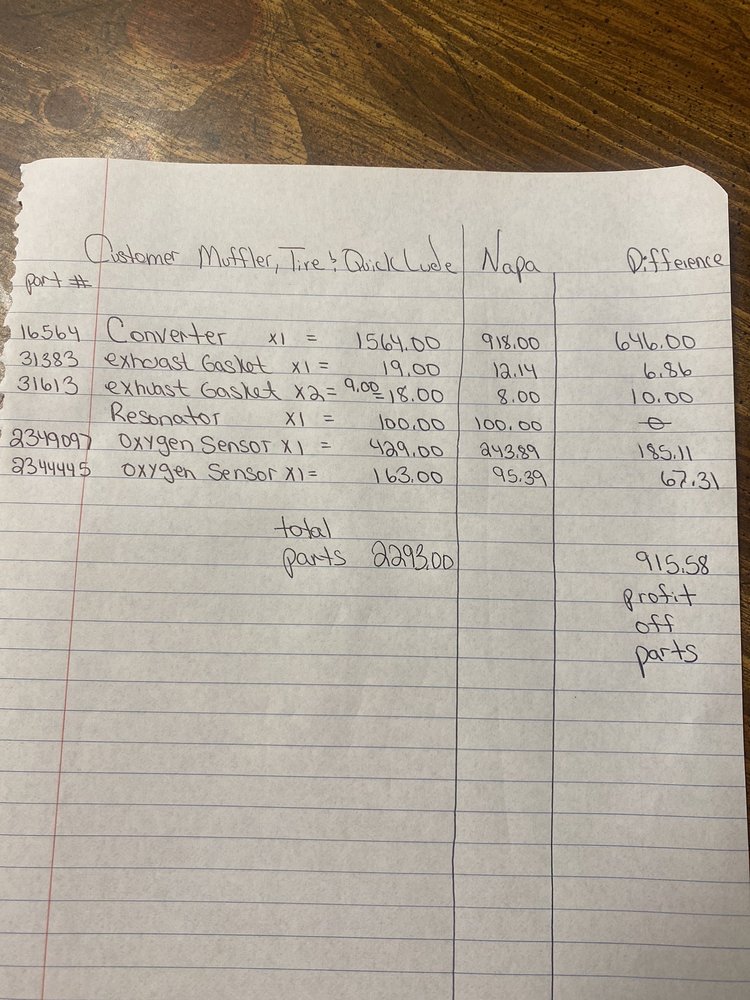 Customer Muffler, Tire & Quick Lude Napa Difference
part #
16564 Converter x1 = 1564.00 918.00 646.00
31383 exhuast Gasket x1 = 19.00 12.14 6.86
31613 exhuast Gasket x2 = 9.00 = 18.00 8.00 10.00
Resonator x1 = 100.00 100.00 0
2349097 oxygen Sensor x1 = 429.00 243.89 185.11
2344445 oxygen Sensor x1 = 163.00 95.39 67.31
total
parts 2293.00 915.58
profit
off
parts